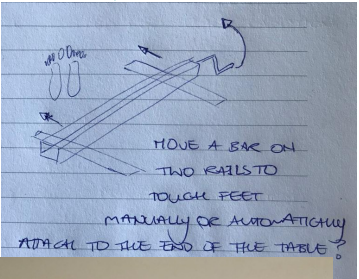 MOVE A BAR ON
TWO RAILS TO
TOUCH FEET
MANUALLY OR AUTOMATICALLY
ATTACH TO THE END OF THE TABLE?